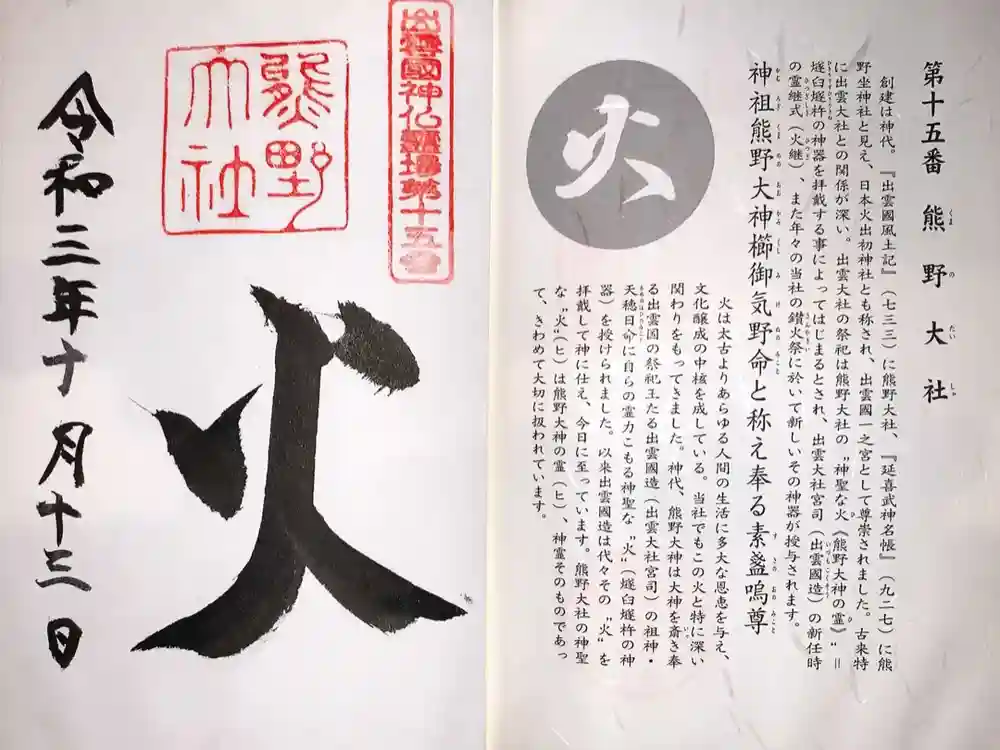 第十五番 熊野大社
創建は神代。『出雲國風土記』（七三三）に熊野大社、『延喜武神名帳』（九二七）に熊
野坐神社と見え、日本火出初神社とも称され、出雲國一之宮として尊崇されました。古来特
に出雲大社との関係が深い。出雲大社の祭祀は熊野大社の“神聖な火《熊野大神の霊》”＝
燧臼燧杵の神器を拝戴する事によってはじまるとされ、出雲大社宮司（出雲國造）の新任時
の霊継式（火継）、また年々の当社の鑽火祭に於いて新しいその神器が授与されます。
神祖熊野大神櫛御気野命と称え奉る素盞嗚尊
火
火は太古よりあらゆる人間の生活に多大な恩恵を与え、
文化醸成の中核を成している。当社でもこの火と特に深い
関わりをもってきました。神代、熊野大神は大神を斎き奉
る出雲国の祭祀王たる出雲國造（出雲大社宮司）の祖神・
天穂日命に自らの霊力こもる神聖な“火”（燧臼燧杵の神
器）を授けられました。以来出雲國造は代々その“火”を
拝戴して神に仕え、今日に至っています。熊野大社の神聖
な“火”（ヒ）は熊野大神の霊（ヒ）、神霊そのものであっ
て、きわめて大切に扱われています。
出雲國神仏霊場第十五番
熊野
大社
火
令和三年十月十三日